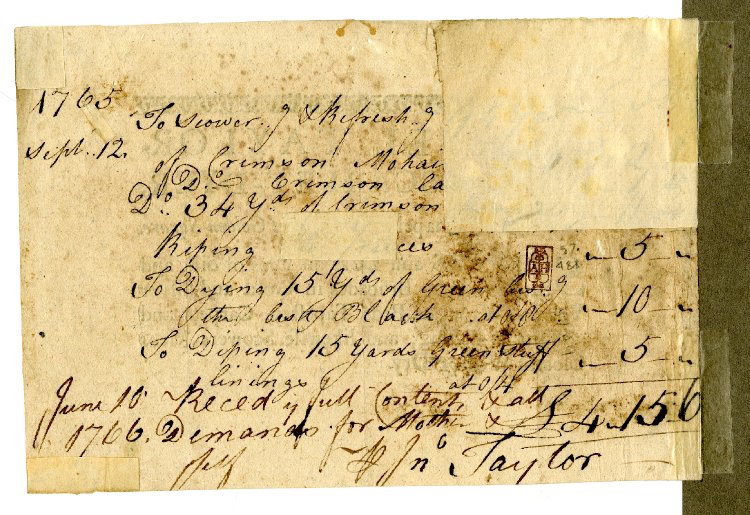 1765 To Scower.g & Refresh.g
Sept. 12. of Crimson Mohai
D.o Crimson
D.o 34 Yds of Crimson
Riping ces 5
To Dying 15 Yds of Green
the best Black at 10
To Diping 15 Yards Green stuff 5
linings at 4
June 10 Reced y full Contents & all £ 4. 15 6
1766. Demands for Mother &
self Jno Taylor